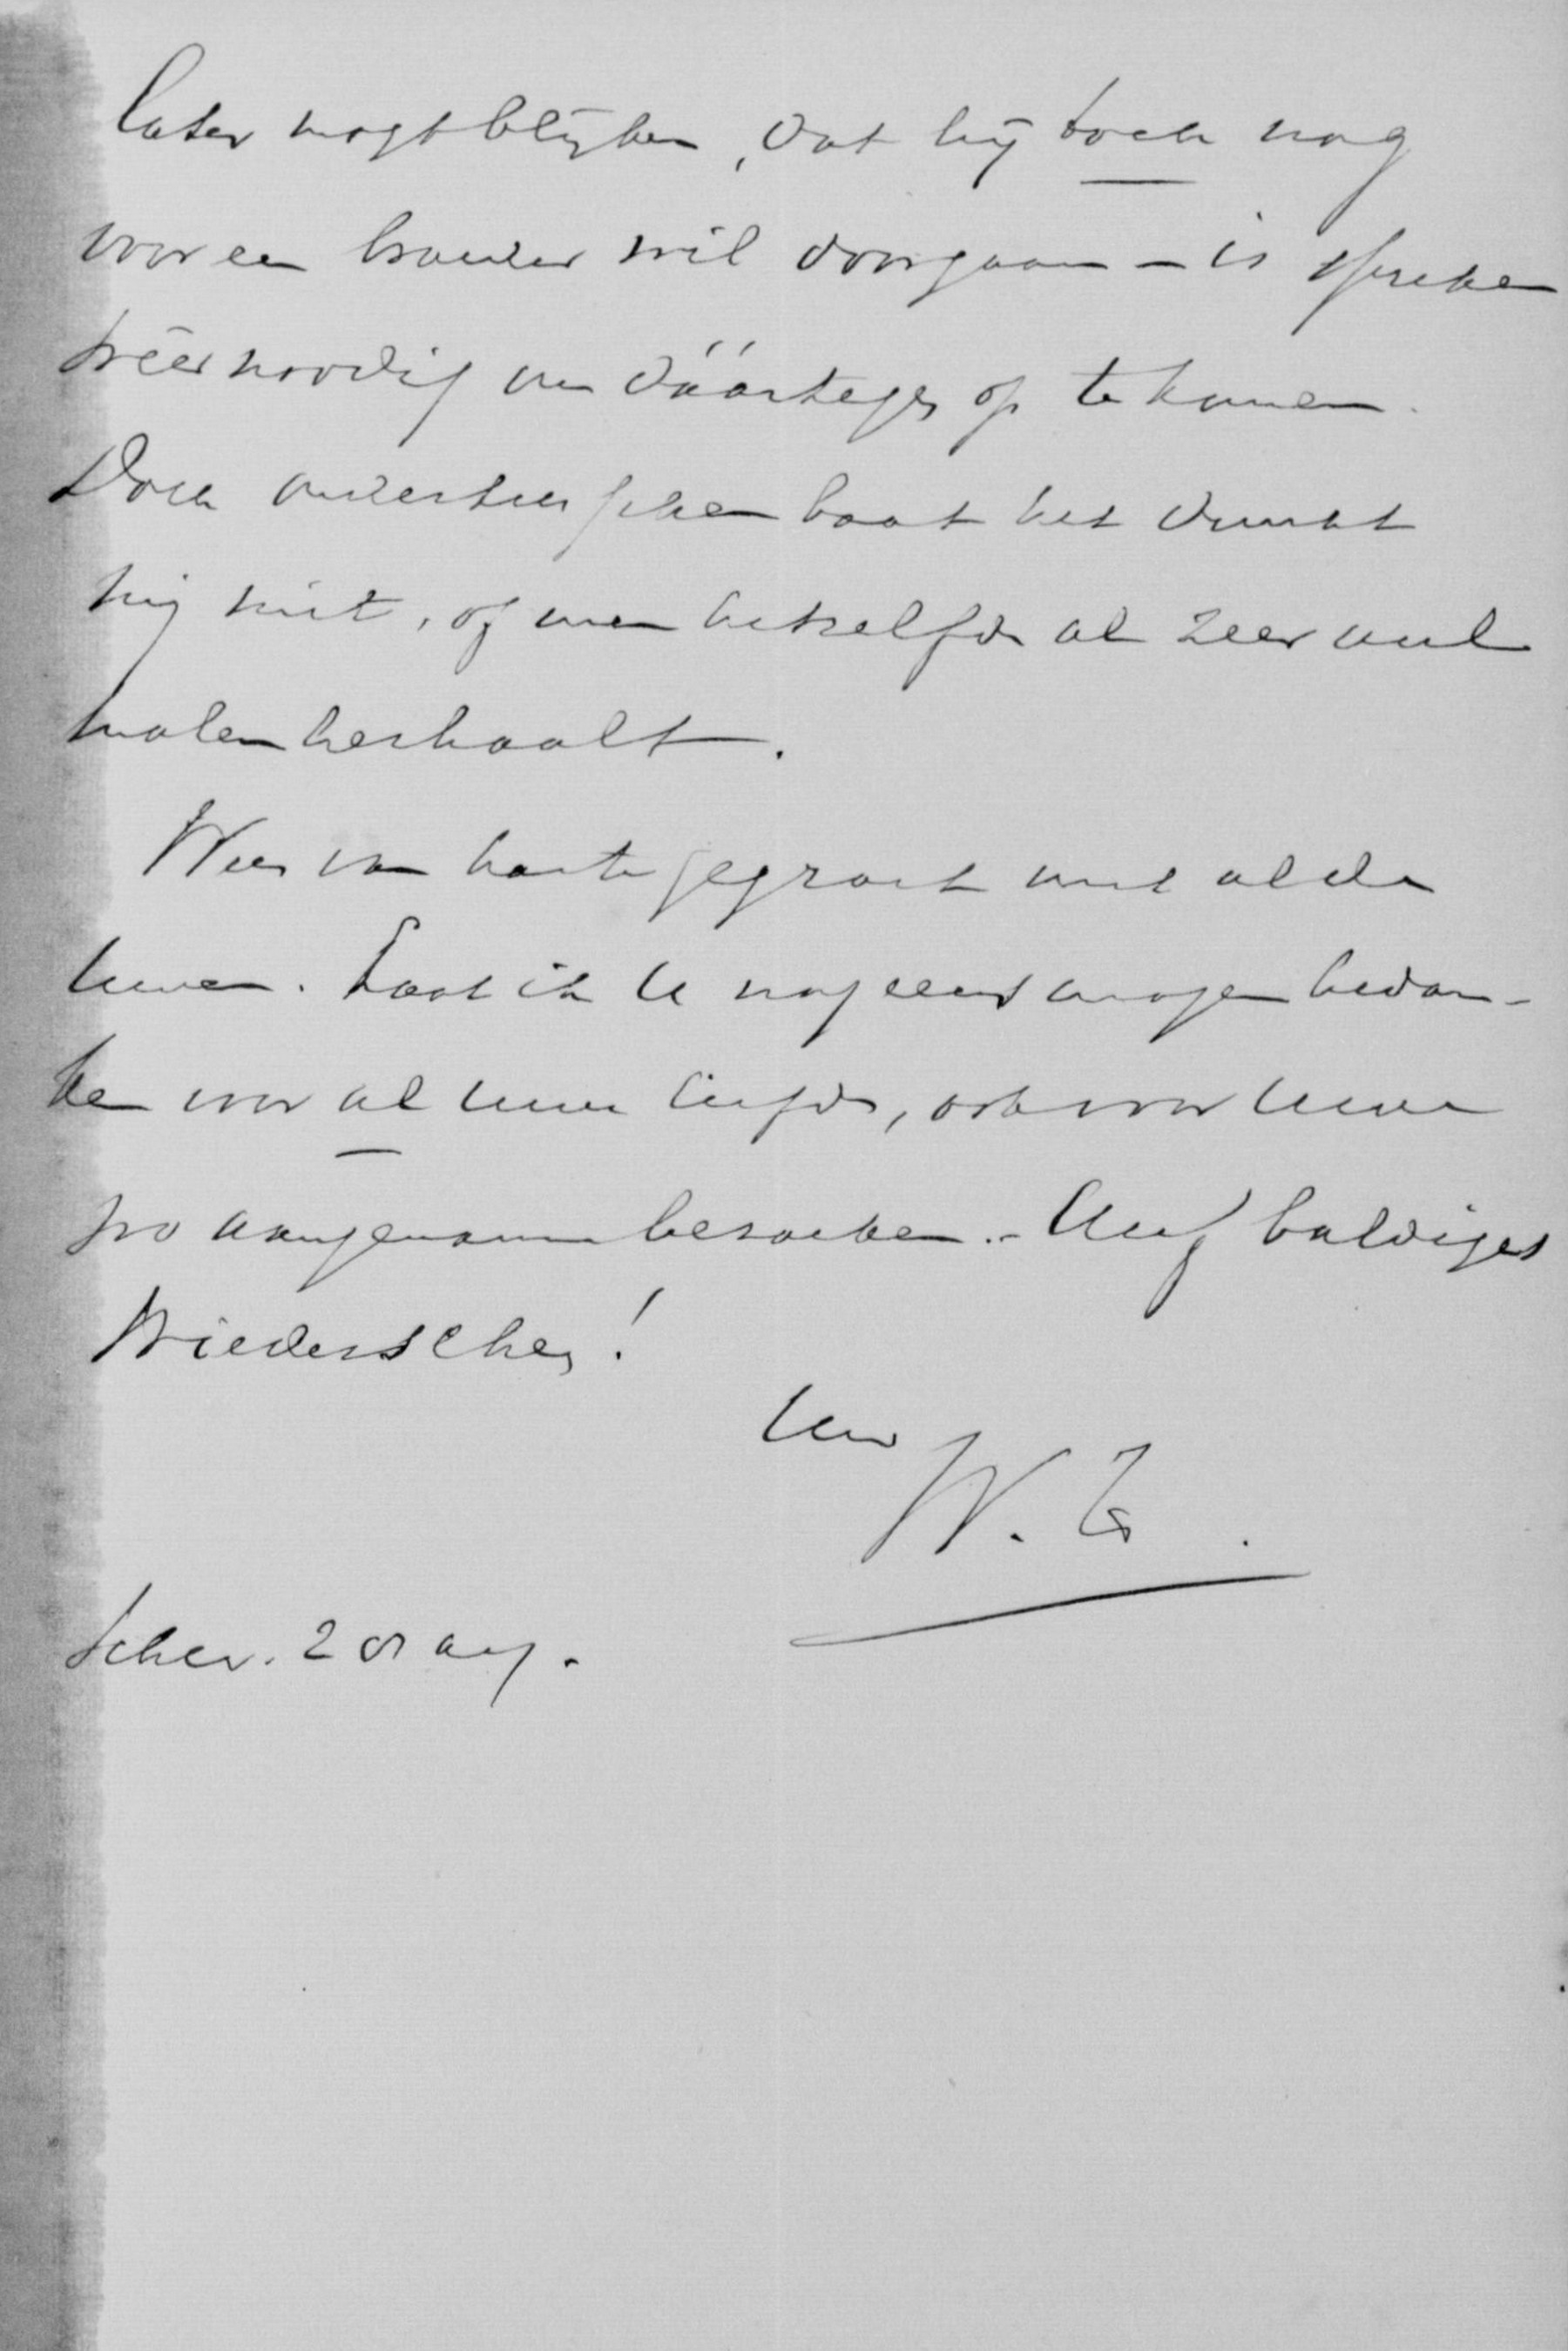 later mogt blijken, dat hij toch nog
voor een broeder wil doorgaan – is spreken
wéér noodig om dáártegen op te komen.
Doch ondertusschen baat het dunkt
mij niet, of men hetzelfde al zeer veel
malen herhaalt.
Wees van harte gegroet met al de
uwen. Laat ik U nog eens mogen bedan-
ken voor al uwe liefde, ook voor uwe
zoo aangename bezoeken. – Auf baldiges
Wiedersehen!
Uw
W. G.
Schev. 28 aug.